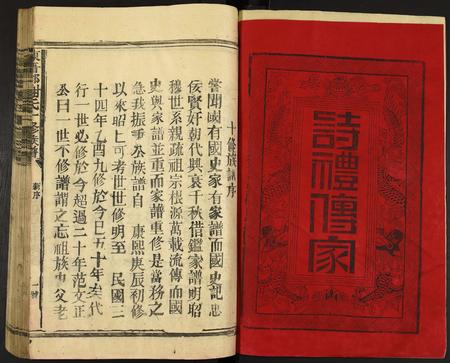 十修族譜序
嘗聞國有國史家有家譜而國史記忠
佞賢奸朝代興衰千秋借鑑家譜明昭
穆世系親疏祖宗根源萬載流傳而國
史與家譜並重而家譜重修是當務之
急我振 公族譜自 康熙庚辰初修
以來昭昭可考世世修明至 民國三
十四年乙酉九修於今已五十年矣代
行一世必修於今超過二十年范文正
公曰一世不修譜謂之忘祖族中父老
新序
詩禮傳家